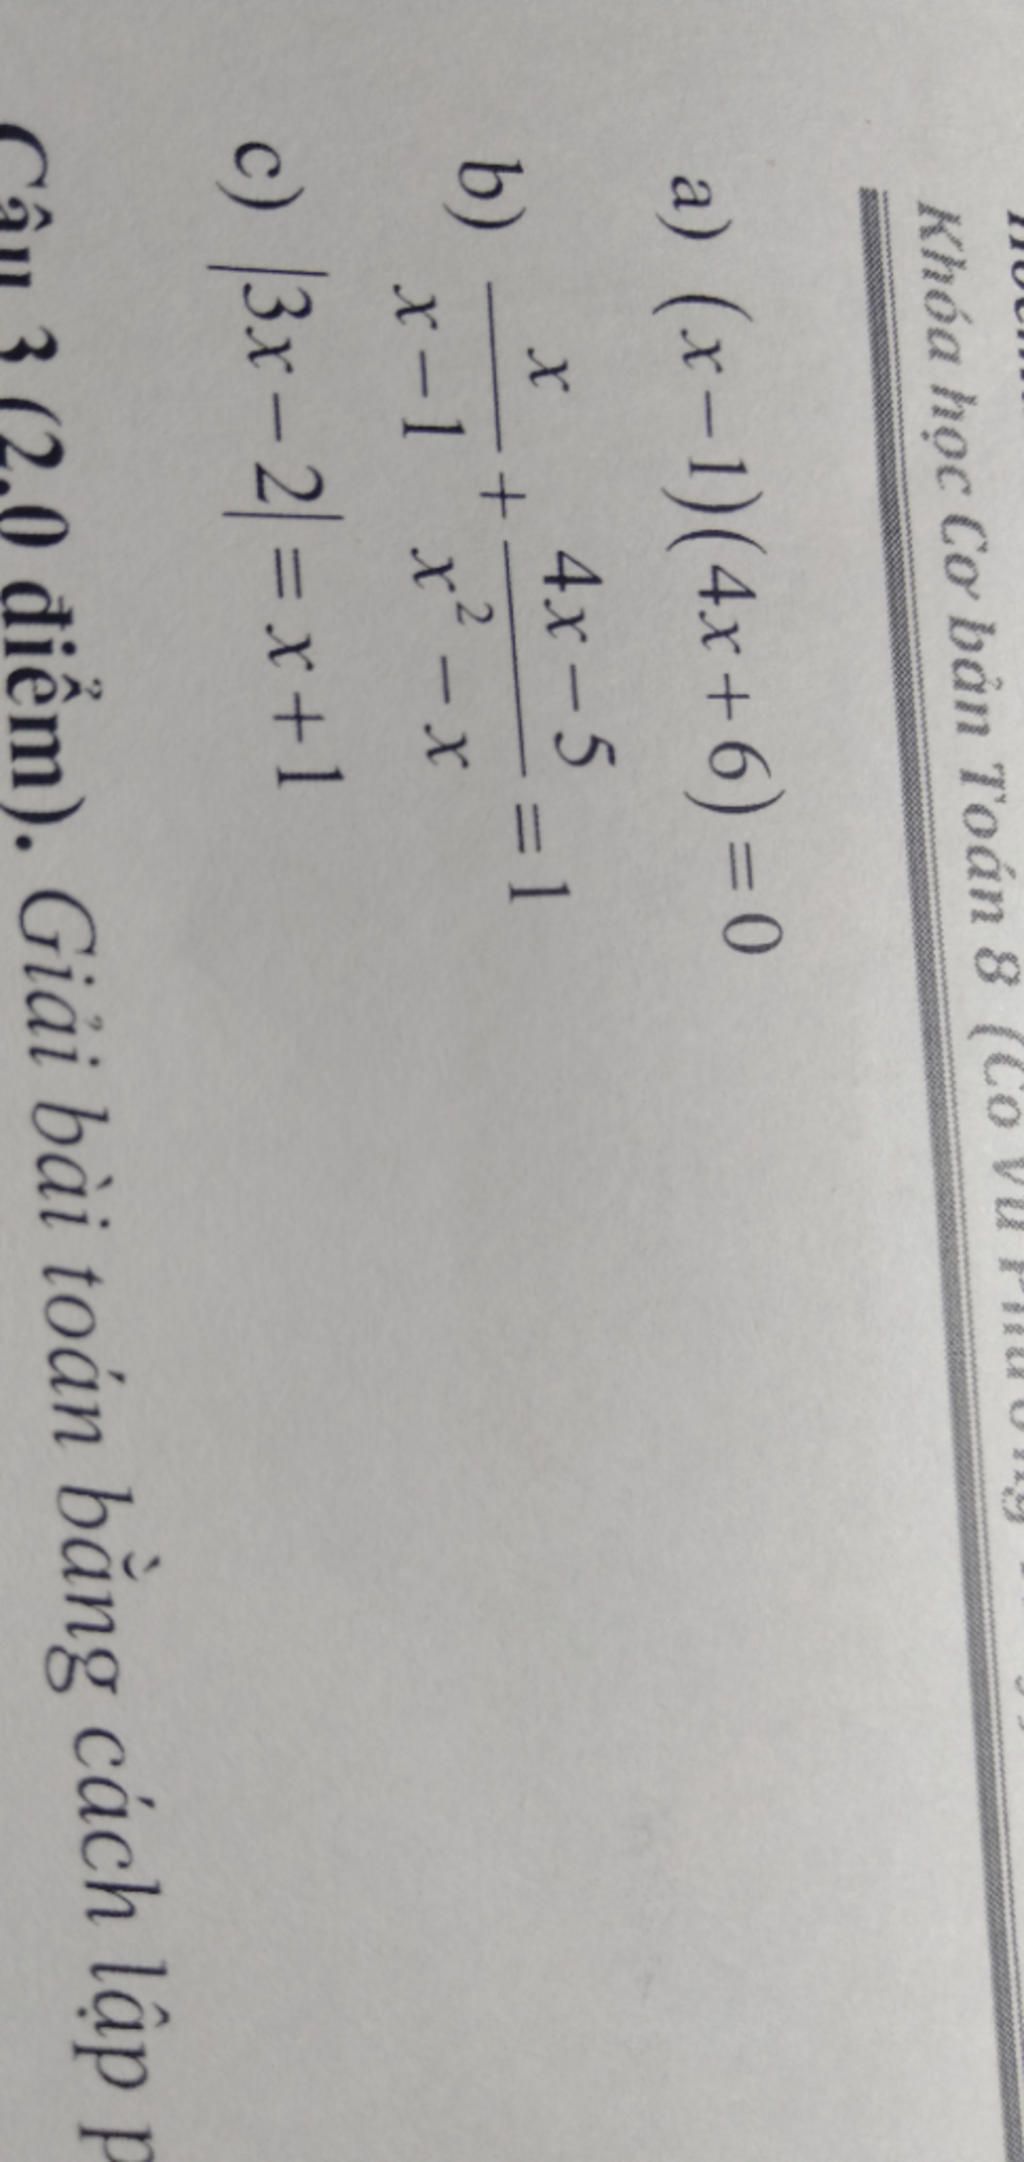 Khóa học Cơ bản Toán 8 (Cô Vũ
a) (x-1)(4x+6)=0
b) \frac{x}{x-1}+\frac{4x-5}{x^2-x}=1
c) |3x-2|=x+1
Câu 3 (2,0 điểm). Giải bài toán bằng cách lập